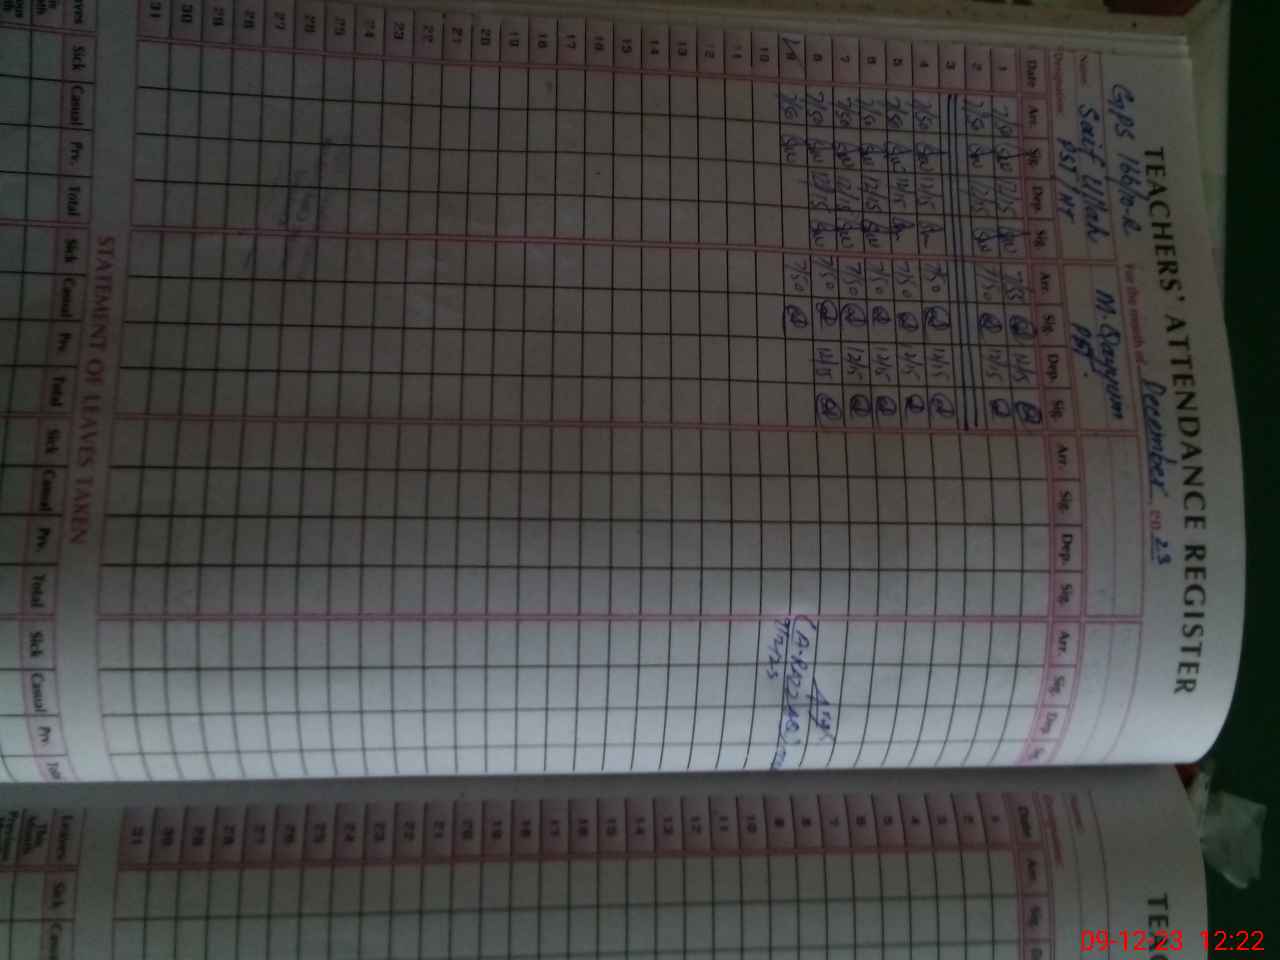 TEACHERS' ATTENDANCE REGISTER
GPS 166/10-R For the month of December 20 23
Name Saif Ullah M. Qayyum
Designation PST/HT PST
Date Arr. Sig. Dep. Sig. Arr. Sig. Dep. Sig. Arr. Sig. Dep. Sig. Arr. Sig. Dep.
1 7/50 12/15 7/55 12/15
2 7/50 12/15 7/50 12/15
3
4 7/50 12/15 7/50 12/15
5 7/50 12/15 7/50 12/15
6 7/50 12/15 7/50 12/15
7 7/50 12/15 7/50 12/15
8 7/50 12/15 7/50 12/15
9 7/50 7/50
10
11
12
13
14
15
16
17
18
19
20
21
22
23
24
25
26
27
28
29
30
31
STATEMENT OF LEAVES TAKEN
Sick Casual Prv. Total Sick Casual Prv. Total Sick Casual Prv. Total Sick Casual Prv.
Name
Designation
Date Arr. Sig.
1
2
3
4
5
6
7
8
9
10
11
12
13
14
15
16
17
18
19
20
21
22
23
24
25
26
27
28
29
30
31
Leaves Sick
This Month
09-12-23 12:22